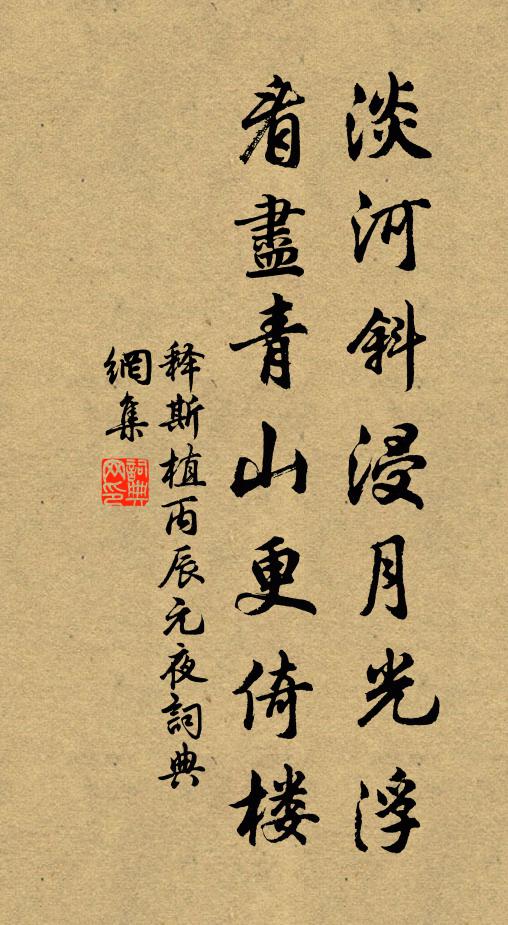 淡河斜浸月光浮
看盡青山更倚楼
释斯植丙辰元夜詞典
網集
詞典网印